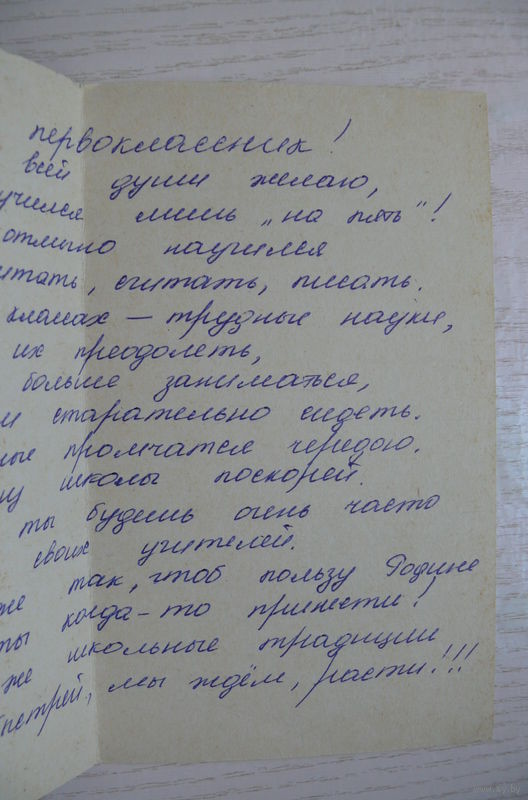 первоклассник!
всей души желаю,
учился лишь „на пять"!
отлично научился
итать, считать, писать.
класах — трудные науки,
их преодолеть,
больше заниматься,
и старательно сидеть.
ые промчатся чередою.
у школы поскорей.
ты будешь очень часто
своих учителей.
же так, чтоб пользу Родине
ты когда-то принести!
же школьные традиции
быстрей, мы ждём, расти!!!
www.ay.by